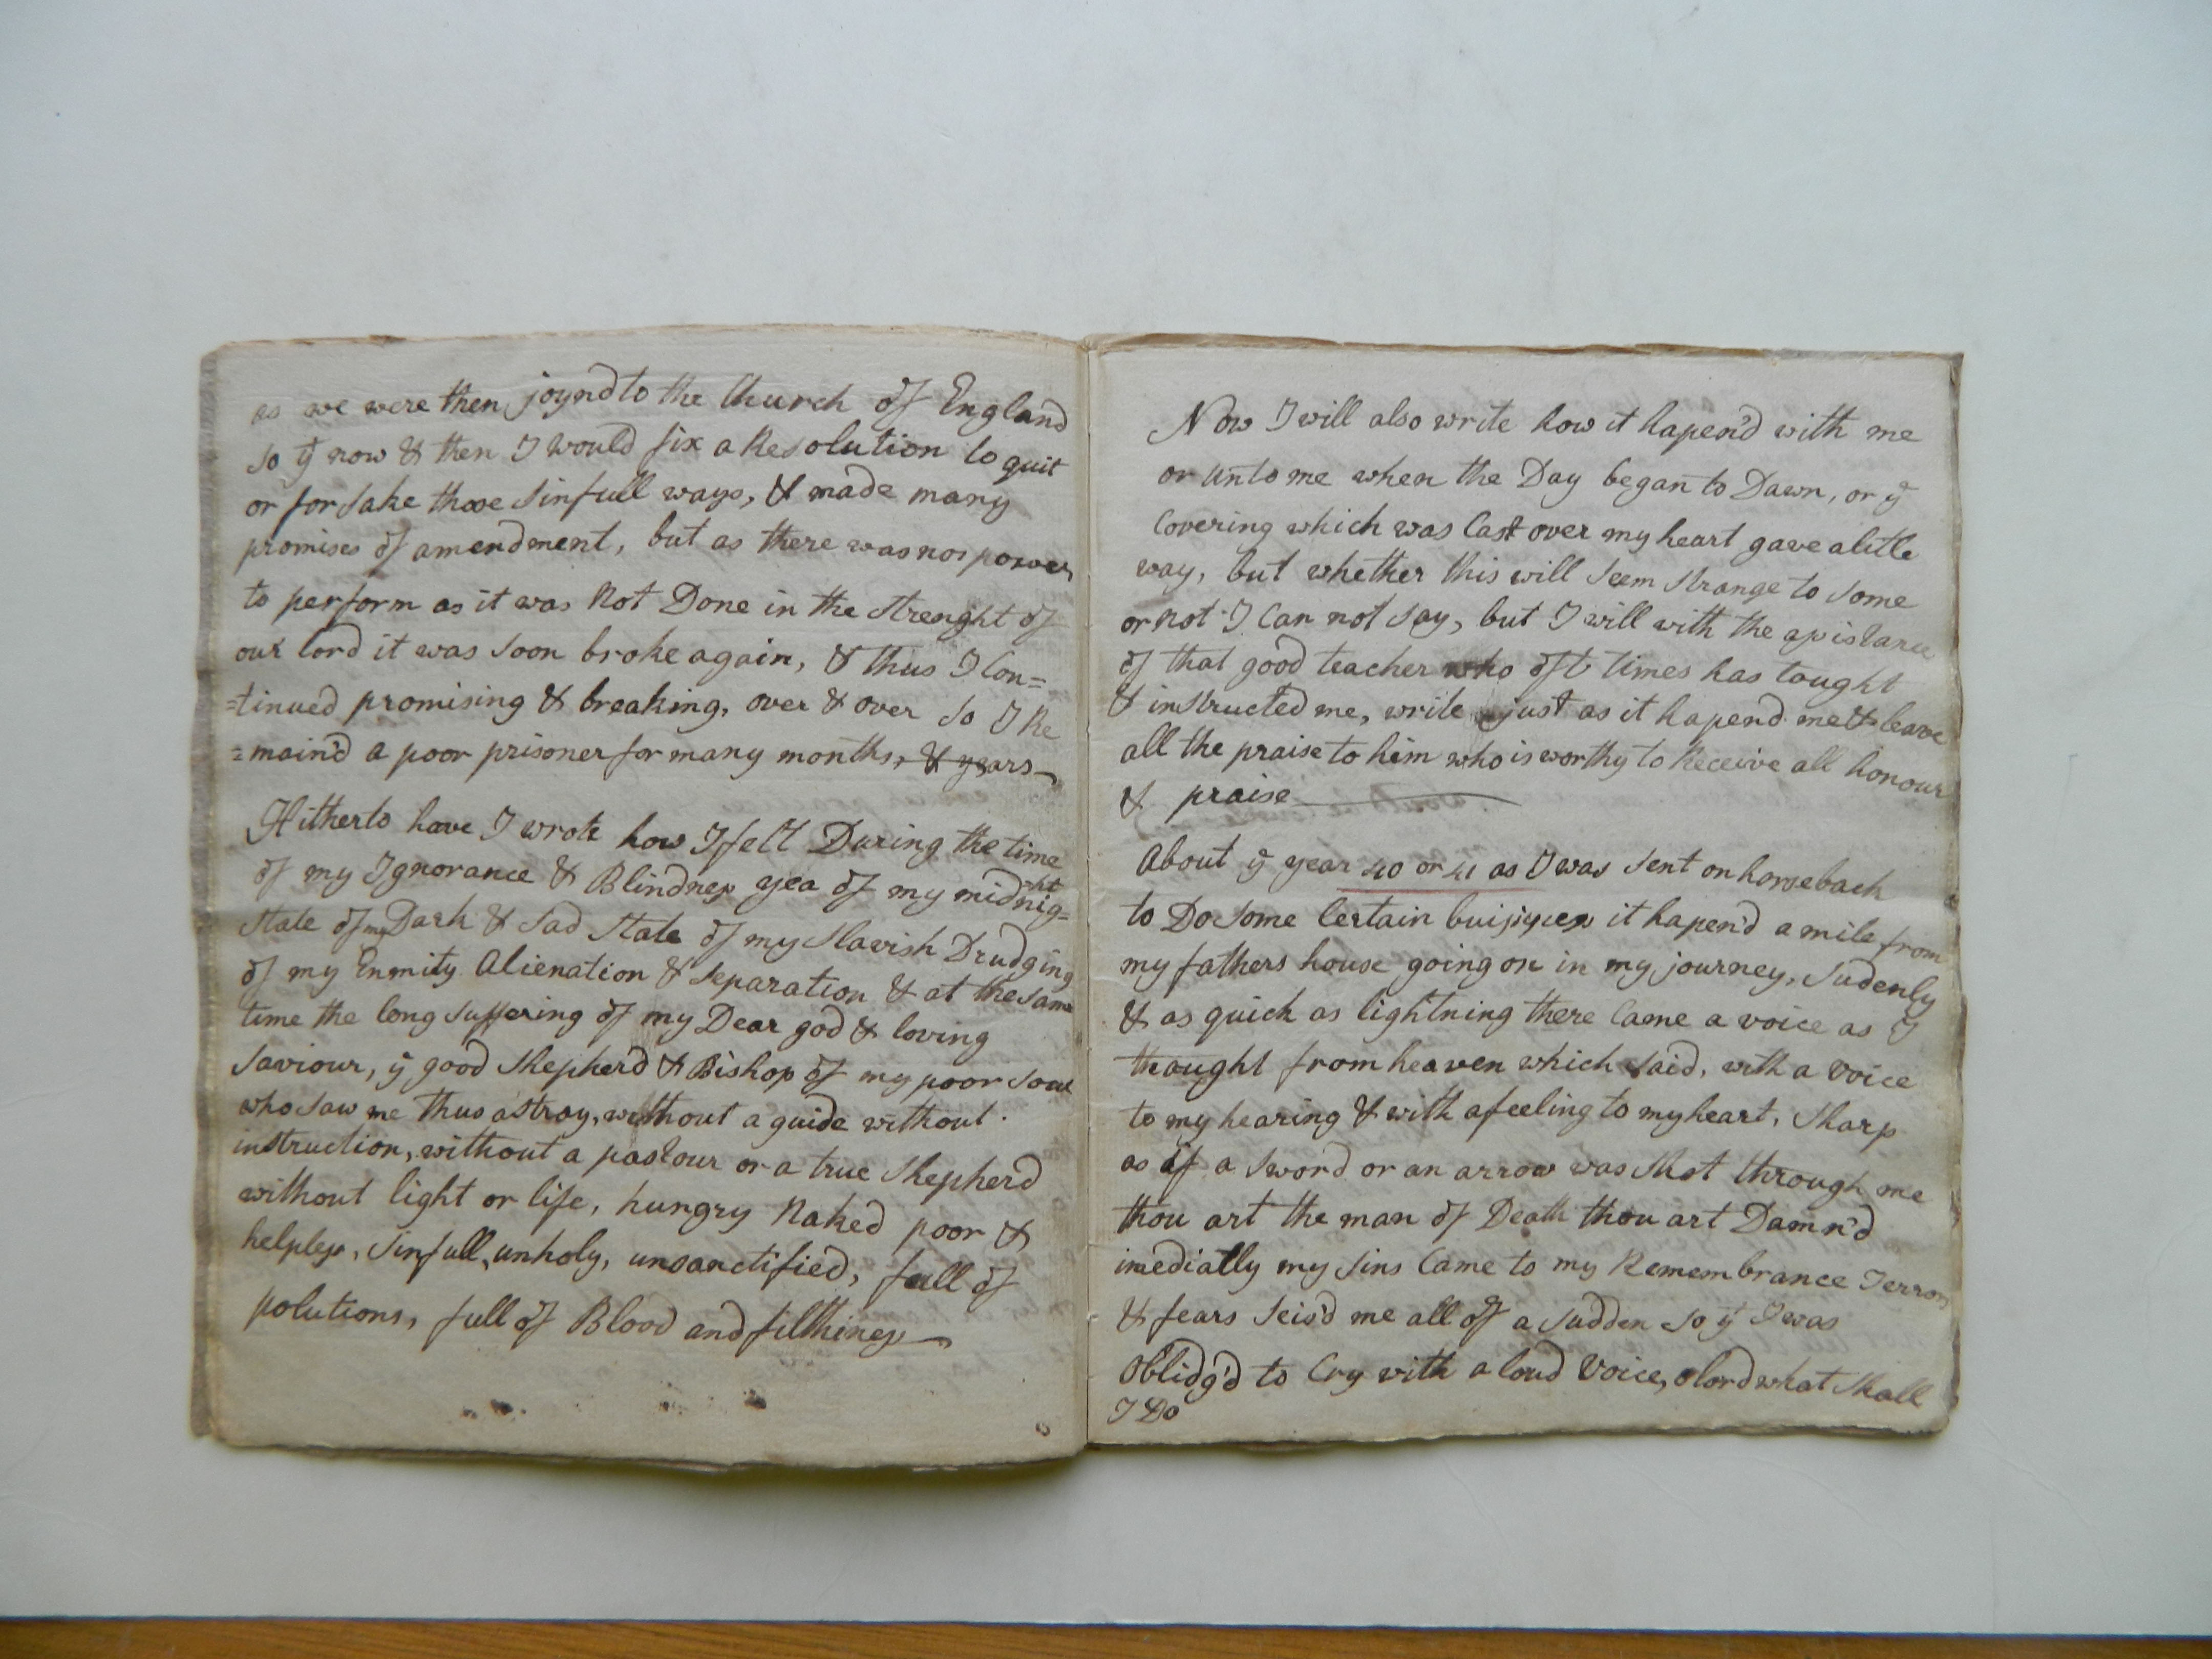 as we were then joynd to the Church of England
so yt now & then I would fix a Resolution to quit
or forsake those sinfull ways, & made many
promises of amendment, but as there was no power
to perform as it was Not Done in the strenght of
our lord it was soon broke again, & thus I Con=
=tinued promising & breaking, over & over so I Re
=main'd a poor prisoner for many months, & years
Hitherto have I wrote how I felt During the time
of my Ignorance & Blindness yea of my midnig=ht
state of my Dark & sad state of my slavish Drudging
of my Enmity Alienation & separation & at the same
time the long suffering of my Dear god & loving
saviour, ye good shepherd & Bishop of my poor soul
who saw me thus astray, without a guide without
instruction, without a pastour or a true shepherd
without light or life, hungry Naked poor &
helpless, sinfull, unholy, unsanctified, full of
polutions, full of Blood and filthiness
Now I will also write how it hapen'd with me
or unto me when the Day began to Dawn, or ye
Covering which was Cast over my heart gave a little
way, but whether this will seem strange to some
or not I Can not say, but I will with the assistance
of that good teacher who oft times has taught
& instructed me, write just as it hapend me & leave
all the praise to him who is worthy to Receive all honour
& praise
About ye year 40 or 41 as I was sent on horseback
to Do some Certain it hapen'd a mile from
my fathers house going on in my journey, sudenly
& as quick as lightning there Came a voice as I
thought from heaven which said, with a voice
to my hearing & with a feeling to my heart, sharp
as if a sword or an arrow was shot through me
thou art the man of Death thou art Damn'd
imediatly my sins Came to my Remembrance Terrors
& fears seis'd me all of a sudden so yt I was
Oblidg'd to Cry with a loud voice, o lord what shall
I Do